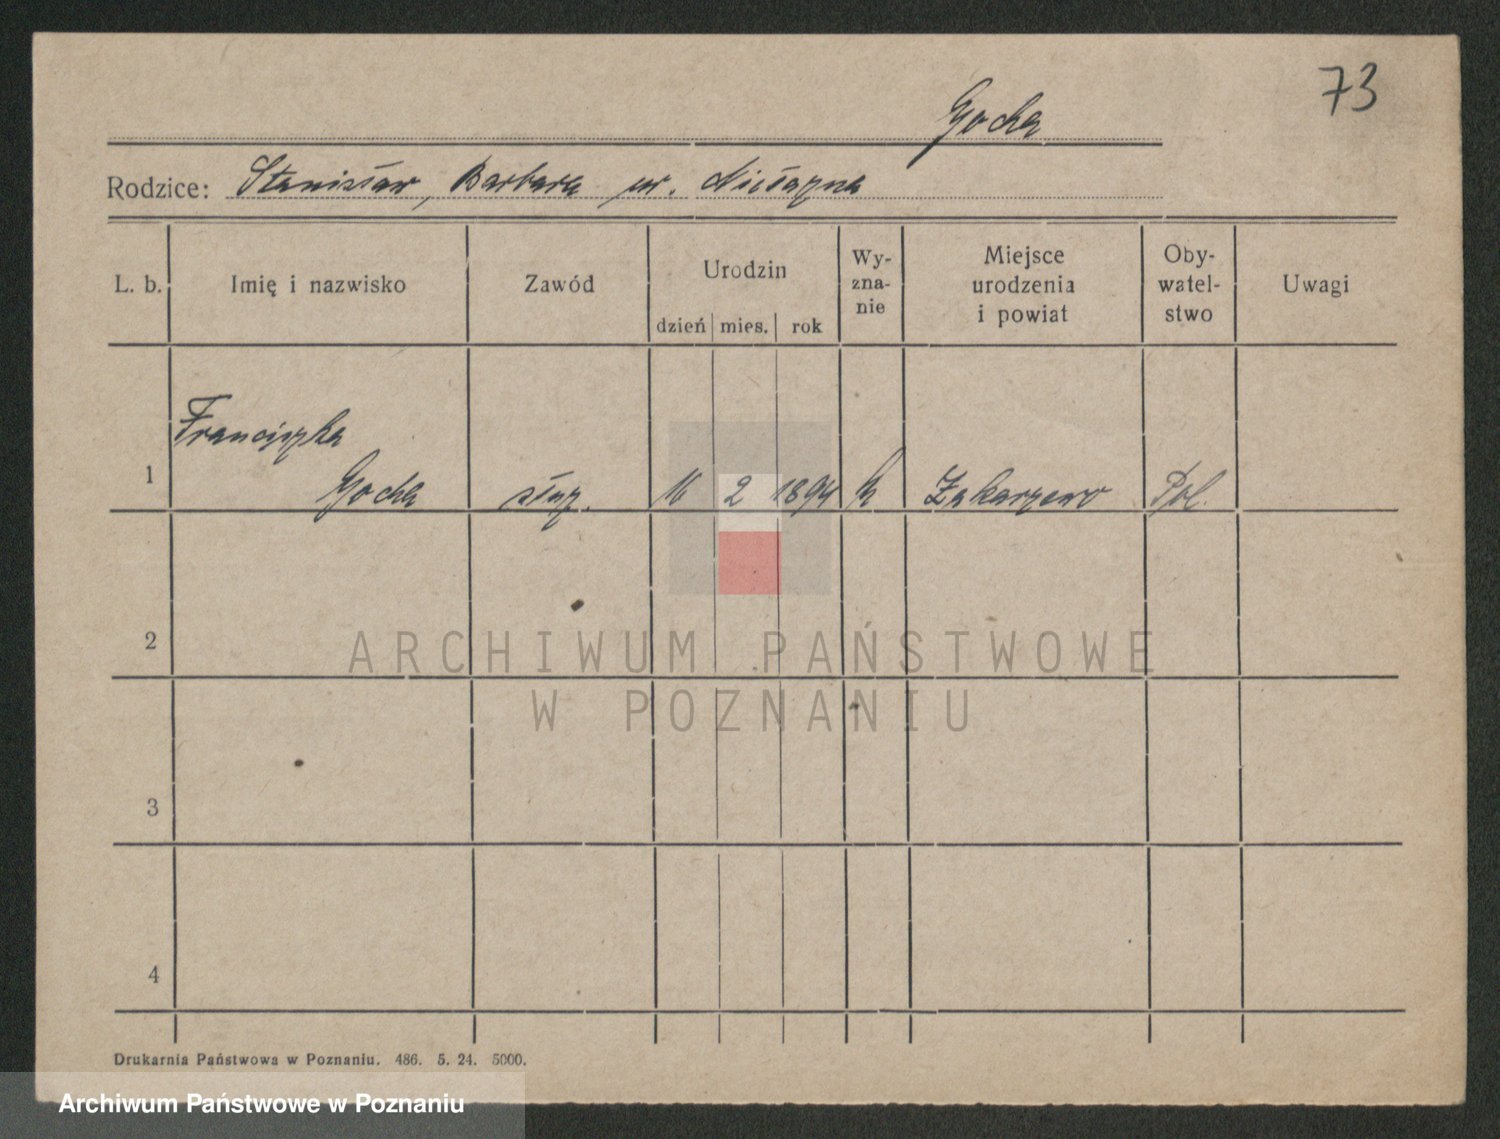 73
Gocha
Rodzice: Stanisław, Barbara ur.
L. b. Imię i nazwisko Zawód Urodzin dzień mies. rok Wy-zna-nie Miejsce urodzenia i powiat Oby-watel-stwo Uwagi
Franciszka
1 Gocha służ. 16 2 1894 k Zakarzewo Pol.
2
ARCHIWUM PAŃSTWOWE
W POZNANIU
3
4
Drukarnia Państwowa w Poznaniu. 486. 5. 24. 5000.
Archiwum Państwowe w Poznaniu